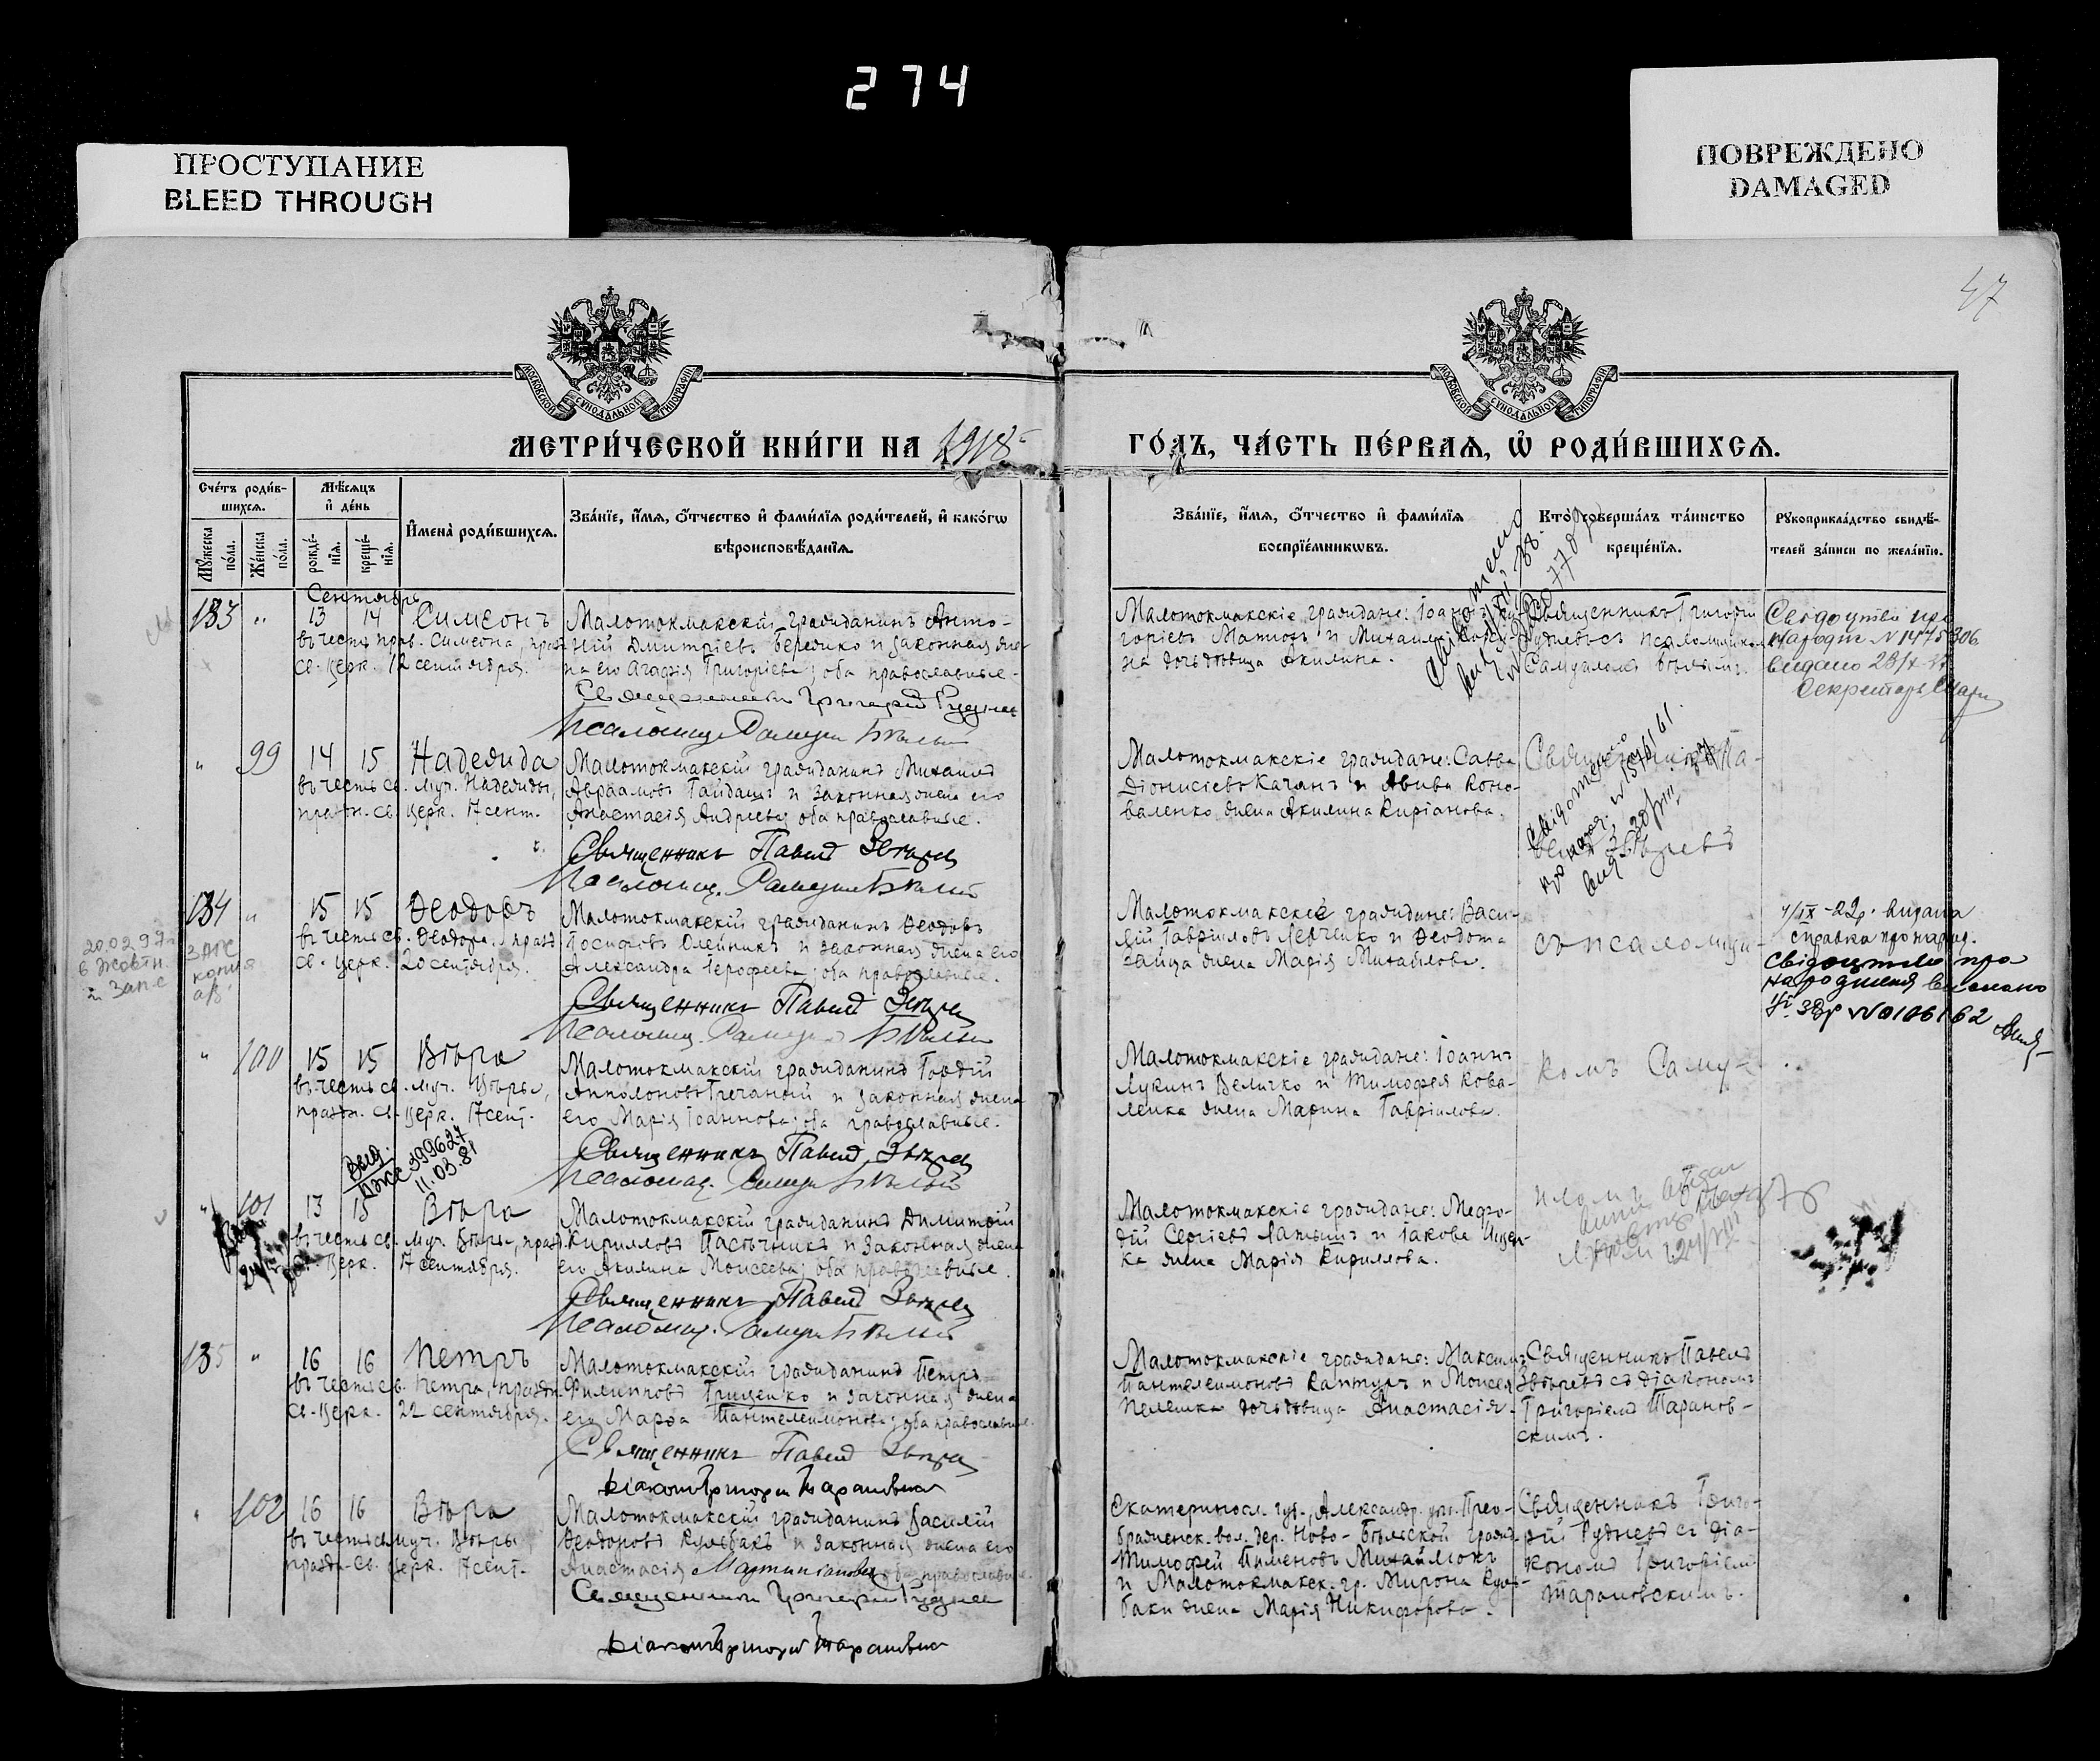 274
ПРОСТУПАНИЕ
BLEED THROUGH
ПОВРЕЖДЕНО
DAMAGED
47
МОСКОВСКОЙ СѴНОДАЛЬНОЙ ТИПОГРАФІИ
МОСКОВСКОЙ СѴНОДАЛЬНОЙ ТИПОГРАФІИ
МЕТРИ́ЧЕСКОЙ КНИ́ГИ НА 1918
ГО́ДЪ, ЧА́СТЬ ПЕ́РВАЯ, Ѡ҆ РОДИ́ВШИХСЯ.
Счётъ роди́вшихся.
Мѣ́сяцъ и҆ де́нь
Мꙋ́жеска по́ла.
Же́нска по́ла.
рожде́нїя.
креще́нїя.
И҆мена̀ роди́вшихся.
Зва́нїе, и҆́мя, ѻ҆́тчество и҆ фами́лїя роди́телей, и҆ како́гѡ
вѣроисповѣ́данїя.
Зва́нїе, и҆́мя, ѻ҆́тчество и҆ фами́лїя
воспрїе́мникѡвъ.
Кто̀ соверша́лъ та́инство
креще́нїя.
Рꙋкоприкла́дство свидѣ́-
телей за́писи по жела́нїю.
Сентябрь
133 " 13 14 Симеонъ
въ честь прав. Симеона, празд.
св. церк. 12 сентября.
Малотокмакскій гражданинъ Анто-
ній Димитріевъ Бережко и законная же-
на его Агафія Григорьева; оба православные.
Священникъ Григорій Руднев
Псаломщ. Самуил Бѣлый
Малотокмакскіе граждане: Іоаннъ
горіевъ Матюхъ и Михаила
на дочь дѣвица Акилина.
Священникъ Григорій
Рудневъ съ псаломщикомъ
Самуиломъ Бѣлымъ.
Свідоцтво про
народж N 1475306
видано
Секретарь
" 99 14 15 Надежда
въ честь св. муч. Надежды,
праздн. св. церк. 17 сент.
Малотокмакскій гражданинъ Михаилъ
Авраамовъ Гайдашъ и законная жена его
Анастасія Андреева; оба православные.
Священникъ Павелъ Звѣрев
Псаломщ. Самуил Бѣлый
Малотокмакскіе граждане: Савва
Діонисіевъ Качанъ и Авива Коно-
валенко жена Акилина Киріанова.
Священникъ Па-
велъ Звѣревъ
134 " 15 15 Ѳеодоръ
въ честь св. Ѳеодора, празд.
св. церк. 20 сентября.
Малотокмакскій гражданинъ Ѳеодоръ
Іосифовъ Олейникъ и законная жена его
Александра Іерофеева; оба православные.
Священникъ Павелъ Звѣрев
Псаломщ. Самуил Бѣлый
Малотокмакскіе граждане: Васи-
лій Гавріиловъ Левченко и Ѳеодота
Зайца жена Марія Михайлова.
съ псаломщи-
видана
справка про народ.
Свідоцтво про
народження выслано
20.02.97
ЗАГС
копия
" 100 15 15 Вѣра
въ честь св. муч. Вѣры,
праздн. св. церк. 17 сент.
Малотокмакскій гражданинъ Гордій
Апполоновъ Гречаный и законная жена
его Марія Іоаннова; оба православные.
Священникъ Павелъ Звѣрев
Псаломщ. Самуил Бѣлый
Малотокмакскіе граждане: Іоаннъ
Лукинъ Величко и Тимофея Кова-
ленка жена Марина Гавріилова.
комъ Саму-
399627
11.03.81
" 101 13 15 Вѣра
въ честь св. муч. Вѣры, празд.
церк. 17 сентября.
Малотокмакскій гражданинъ Димитрій
Кирилловъ Пасѣчникъ и законная жена
его Акилина Моисеева; оба православные.
Священникъ Павелъ Звѣрев
Псаломщ. Самуил Бѣлый
Малотокмакскіе граждане: Меѳо-
дій Сергіевъ Латышъ и Іакова Ищен-
ка жена Марія Кириллова.
иломъ
135 " 16 16 Петръ
въ честь св. Петра, праздн.
св. церк. 22 сентября.
Малотокмакскій гражданинъ Петръ
Филипповъ Гриценко и законная жена
его Марѳа Пантелеимонова; оба православные.
Священникъ Павелъ Звѣрев
Діаконъ Григорій Тарановскій
Малотокмакскіе граждане: Максимъ
Пантелеимоновъ Каптулъ и Моисея
Пелешка дочь дѣвица Анастасія.
Священникъ Павелъ
Звѣревъ съ діакономъ
Григоріемъ Таранов-
скимъ.
" 102 16 16 Вѣра
въ честь св. муч. Вѣры
праздн. св. церк. 17 сент.
Малотокмакскій гражданинъ Василій
Ѳеодоровъ Кульбакъ и законная жена его
Анастасія Мартиніанова; оба православные.
Священникъ Григорій Руднев
Діаконъ Григорій Тарановскій
Екатериносл. губ., Александр. уѣз. Прео-
браженск. вол. дер. Ново- гражд.
Тимофей Пименовъ Михайлюкъ
и Малотокмакск. гр. Мирона Куль-
баки жена Марія Никифорова.
Священникъ Григо-
рій Рудневъ съ діа-
кономъ Григоріемъ
Тарановскимъ.